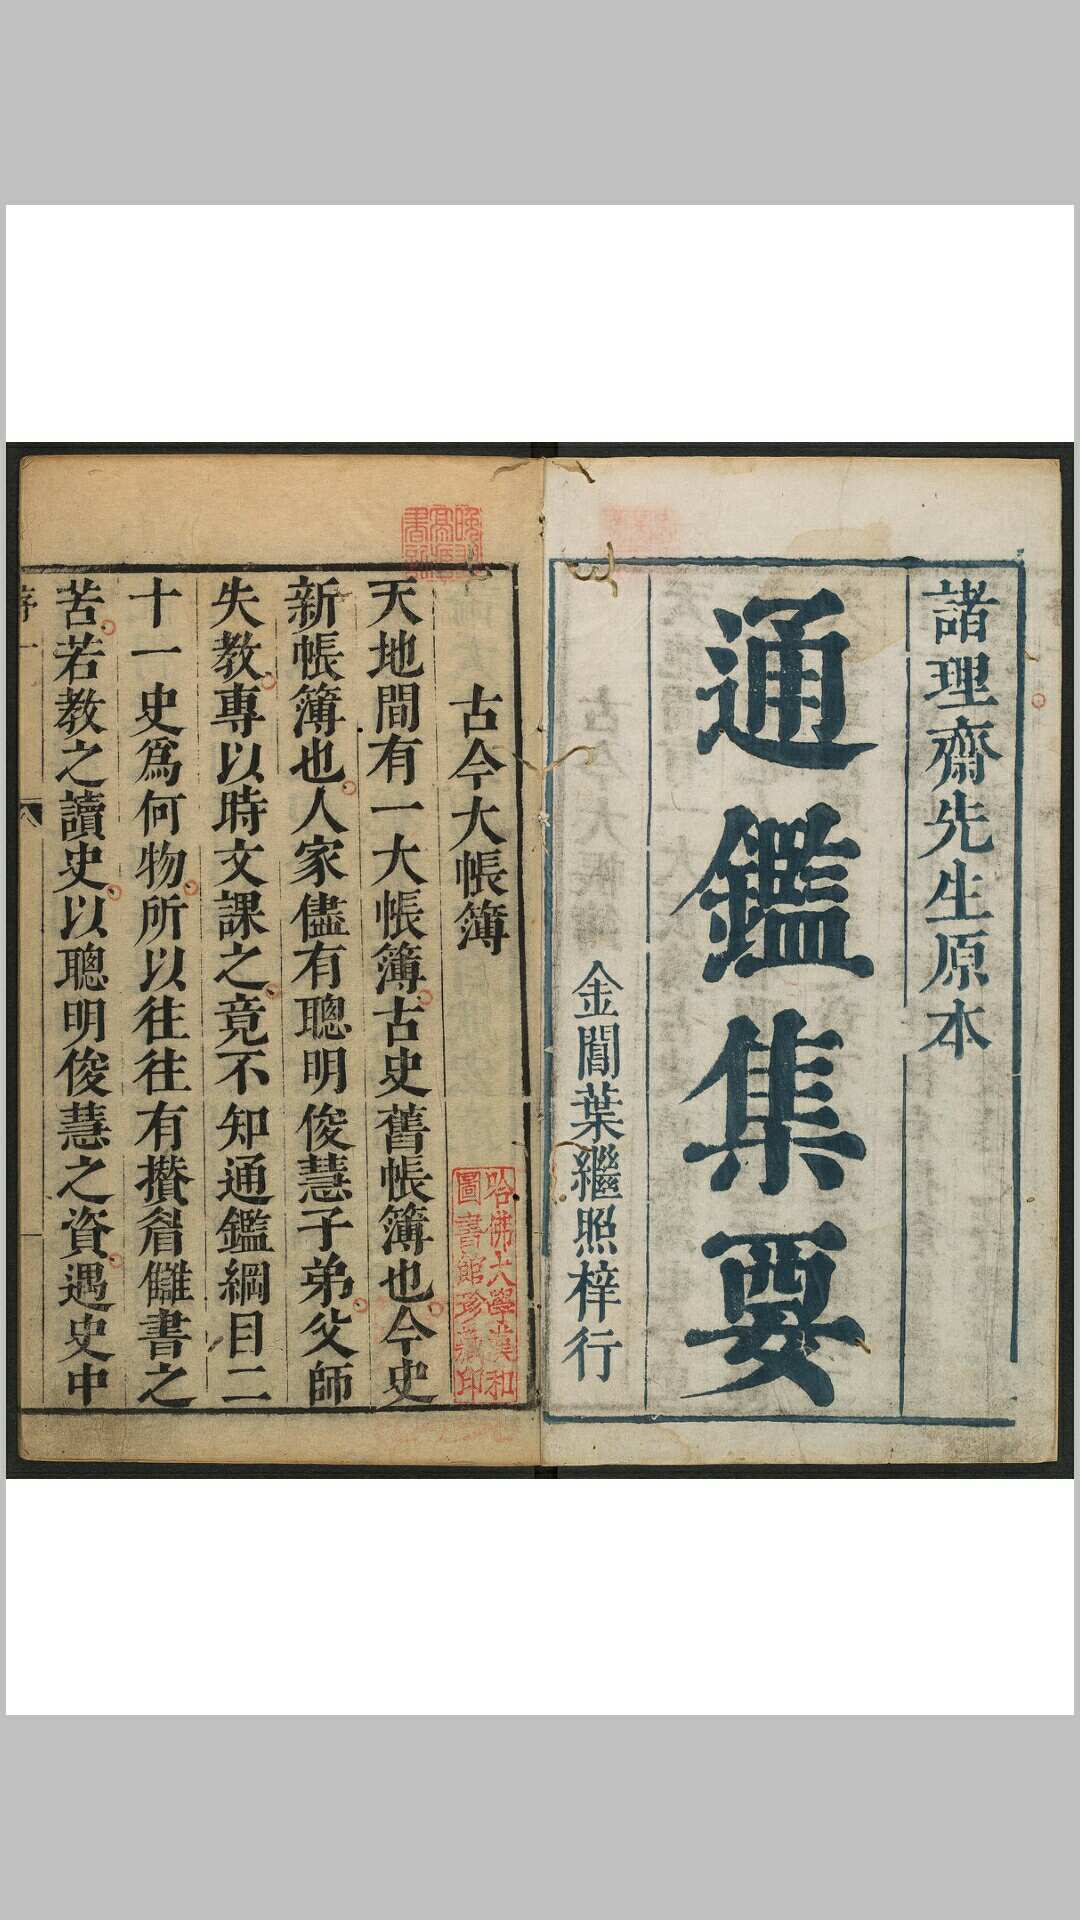 諸理齋先生原本
通鑑集要
金閶葉繼照梓行
古今大帳簿
哈佛大學漢和
圖書館珍藏印
天地間有一大帳簿古史舊帳簿也今史
新帳簿也人家儘有聰明俊慧子弟父師
失教專以時文課之竟不知通鑑綱目二
十一史爲何物所以往往有攢眉讎書之
苦若教之讀史以聰明俊慧之資遇史中
序一